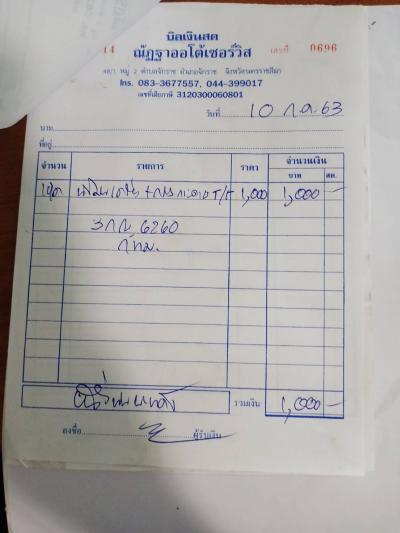 บิลเงินสด
14 ณัฏฐาออโต้เซอร์วิส เลขที่ 0696
48/1 หมู่ 2 ตำบลจักราช อำเภอจักราช จังหวัดนครราชสีมา
โทร. 083-3677557, 044-399017
เลขที่เสียภาษี 3120300060801
วันที่ 10 ก.ค. 63
นาม
ที่อยู่
จำนวน รายการ ราคา จำนวนเงิน
บาท สต.
1ชุด T/T 1,000 1,000 -
3กก 6260
กทม.
หนึ่งพันบาทถ้วน รวมเงิน 1,000 -
ลงชื่อ ผู้รับเงิน